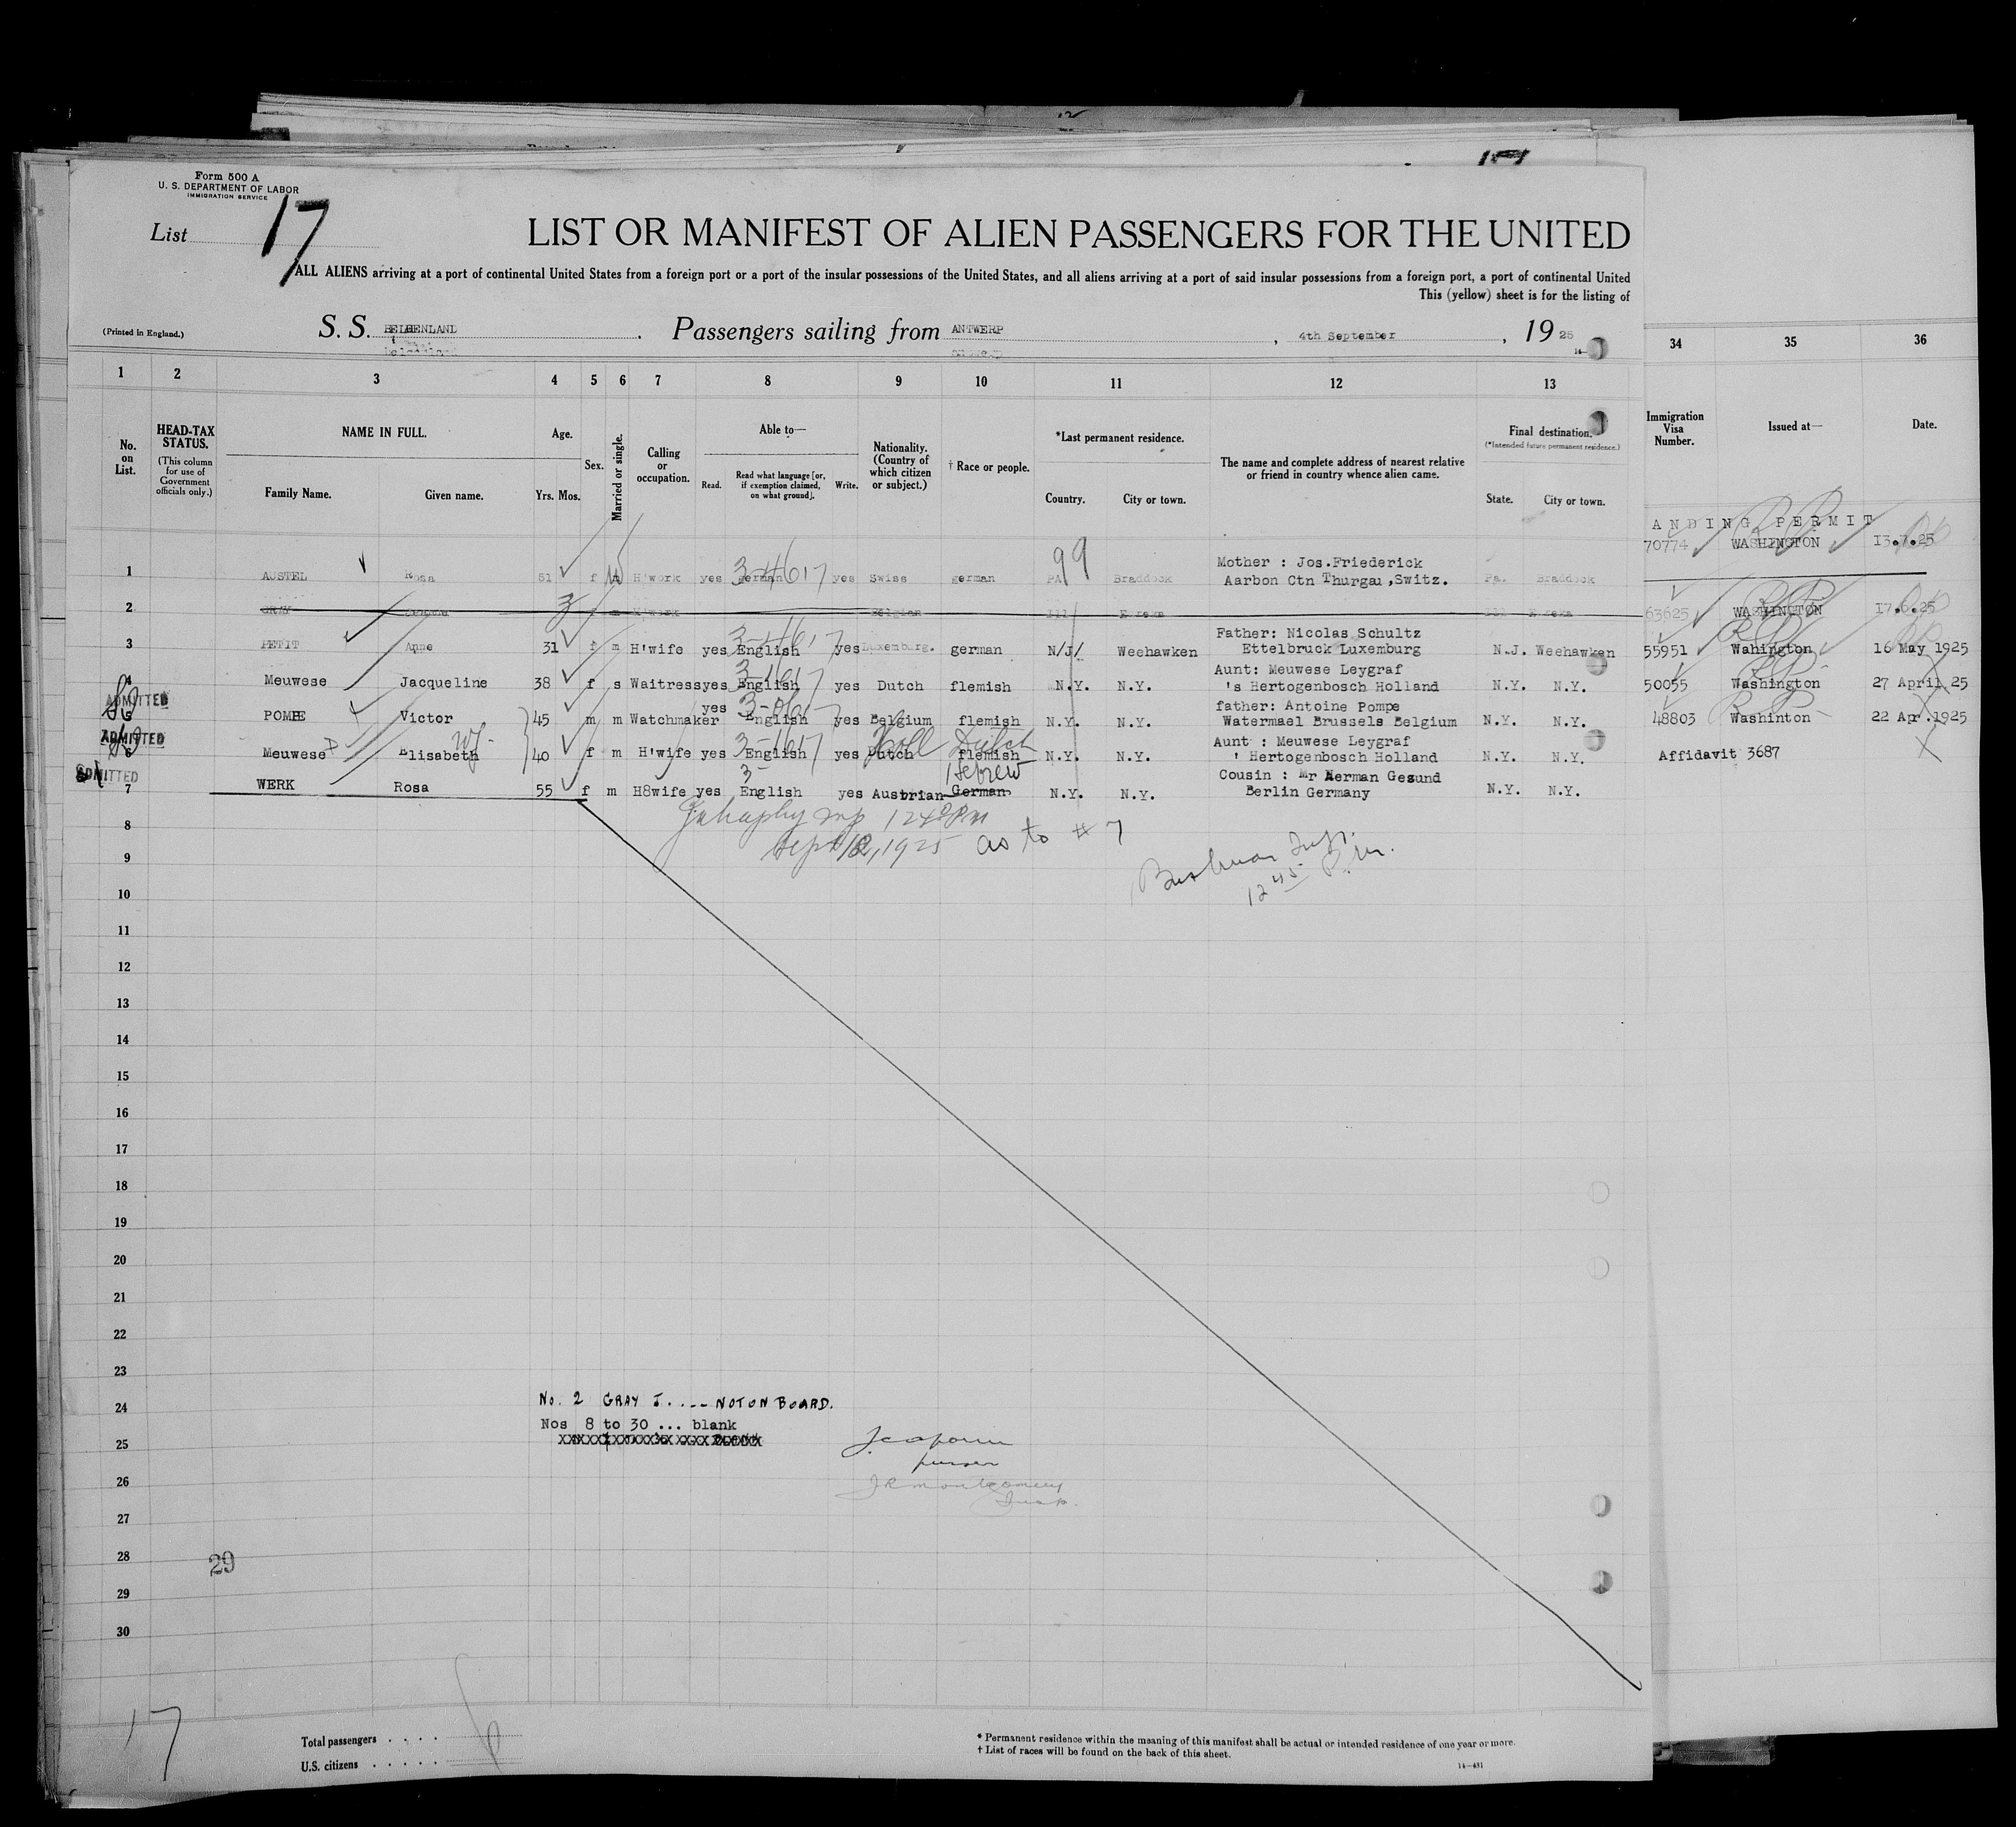 Form 500 A
U. S. DEPARTMENT OF LABOR
IMMIGRATION SERVICE
List 17
LIST OR MANIFEST OF ALIEN PASSENGERS FOR THE UNITED
ALL ALIENS arriving at a port of continental United States from a foreign port or a port of the insular possessions of the United States, and all aliens arriving at a port of said insular possessions from a foreign port, a port of continental United
This (yellow) sheet is for the listing of
(Printed in England.)
S. S. BELGENLAND Passengers sailing from ANTWERP, 4th September, 19 25
1 2 3 4 5 6 7 8 9 10 11 12 13 34 35 36
No. on List.
HEAD-TAX STATUS.
(This column for use of Government officials only.)
NAME IN FULL.
Family Name. Given name.
Age.
Yrs. Mos.
Sex.
Married or single.
Calling or occupation.
Able to—
Read. Read what language [or, if exemption claimed, on what ground]. Write.
Nationality. (Country of which citizen or subject.)
† Race or people.
*Last permanent residence.
Country. City or town.
The name and complete address of nearest relative or friend in country whence alien came.
Final destination.
(*Intended future permanent residence.)
State. City or town.
Immigration Visa Number.
Issued at—
Date.
ANDING PERMIT
99
Mother : Jos.Friederick
1 AUSTEL Rosa 51 f M H'work yes german yes Swiss german PA Braddock Aarbon Ctn Thurgau,Switz. Pa. Braddock 70774 WASHINGTON 13.7.25
2 GRAY m H'work Belgian Ill Eureka Ill Eureka 63625 WASHINGTON 17.6.25
Father: Nicolas Schultz
3 PETIT Anne 31 f m H'wife yes English yes Luxemburg. german N/J/ Weehawken Ettelbruck Luxemburg N.J. Weehawken 55951 Wahington 16 May 1925
Aunt: Meuwese Leygraf
4 Meuwese Jacqueline 38 f s Waitress yes English yes Dutch flemish N.Y. N.Y. 's Hertogenbosch Holland N.Y. N.Y. 50055 Washington 27 April 25
ADMITTED
father: Antoine Pompe
5 POMPE Victor 45 m m Watchmaker yes English yes Belgium flemish N.Y. N.Y. Watermael Brussels Belgium N.Y. N.Y. 48803 Washinton 22 Apr.1925
ADMITTED
Holl Dutch
Aunt : Meuwese Leygraf
6 Meuwese P Elisabeth wf 40 f m H'wife yes English yes Dutch flemish N.Y. N.Y. ' Hertogenbosch Holland N.Y. N.Y. Affidavit 3687
ADMITTED
Hebrew
Cousin : Mr Herman Gesund
7 WERK Rosa 55 f m H8wife yes English yes Austrian German N.Y. N.Y. Berlin Germany N.Y. N.Y.
8
Sept 12, 1925 as to # 7
9
12 45 P.M.
10
11
12
13
14
15
16
17
18
19
20
21
22
23
No. 2 GRAY J. .... NOT ON BOARD.
24
Nos 8 to 30 ... blank
25
purser
26
J R Montgomery
Insp.
27
28
29
29
30
17
Total passengers . . . .
U.S. citizens . . . . .
* Permanent residence within the meaning of this manifest shall be actual or intended residence of one year or more.
† List of races will be found on the back of this sheet.
14—431